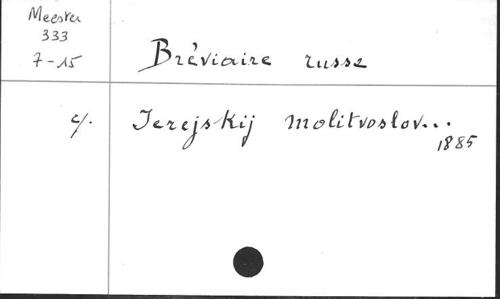 Meester
333
7-15
Bréviaire russe
cf. Ierejskij molitvoslov...
1885